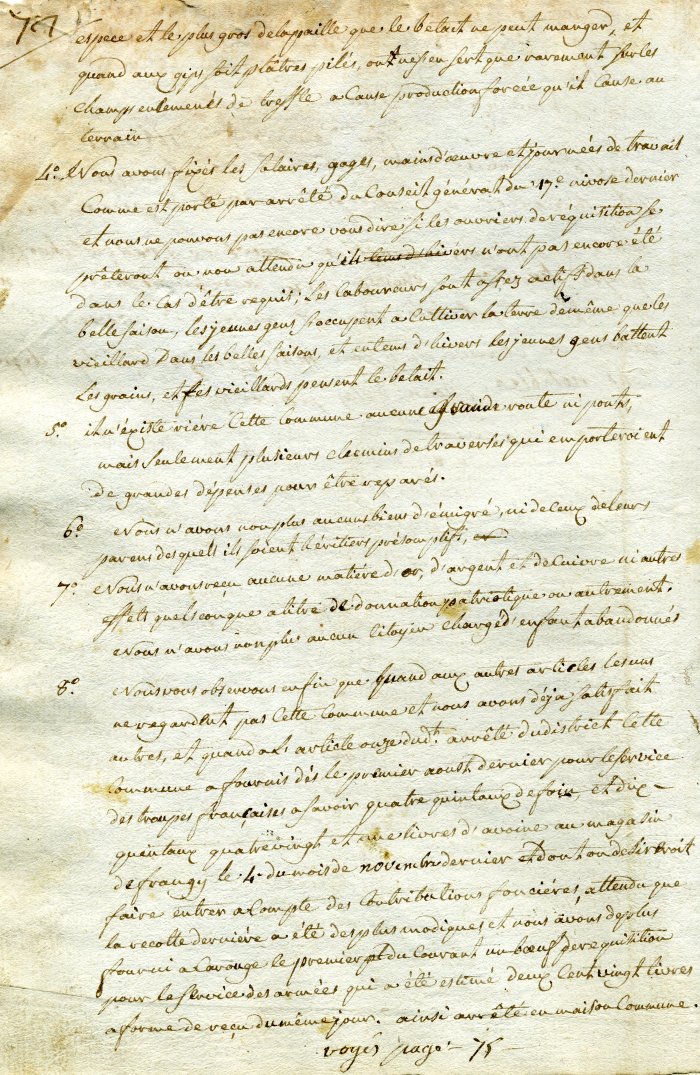 74
espece et le plus gros de la paille que le betait ne peut manger, et
quand aux gips soit plâtres pilés, ont nes en sert que rarement sur les
champs enlemenés de treffle a Cause production forcée qu'il Cause au
terrain
4.o Nous avons fixés les salaires, gages, mains d'œuvre et journées de travail
Comme est porté par arrêté du Conseil général du 17.e nivose dernier
et nous ne pouvons pas encore vous dire si les ouvriers de réquisition se
prêteront ou non attendu qu'ils n'ont pas encore été
dans le Cas d'être requis; Les Laboureurs sont assez actifs dans la
belle saison, les jeunes gens s'occupent a Cultiver la terre de même que les
vieillard Dans les belles saisons, et en tems d'hivers les jeunes gens battent
Les grains, et les vieillards pensent le betait.
5.o il n'éxiste riére Cette Commune aucune Grande route ni ponts,
mais seulement plusieurs chemins de traverses qui emporteroient
de grandes dépenses pour être reparés.
6.o Nous n'avons non plus aucuns biens d'émigré, ni de ceux de leurs
parens desquels ils soient héritiers présomptifs,
7.o Nous n'avons reçu aucune matiére d'or, d'argent et de Cuivre ni autres
effets quelsconque a titre de donnation patriotique ou autrement.
Nous n'avons non plus aucun Citoyen chargé d'enfant abandonnés
8.o Nous vous observons enfin que quand aux autres articles les uns
ne regardent pas Cette Commune et nous avons déja satisfait
autres, et quand a L'article onze dud.t arrêté du district Cette
Commune a fournis dés le premier aoust dernier pour le service
des troupes françaises a savoir quatre quintaux de foin et dix-
quintaux quatrevingt et une livres d'avoine au magasin
de frangy le 4. du mois de novembre dernier et dont on desireroit
faire entrer a Compte des Contributions fonciéres, attendu que
la recolte derniére a été des plus modiques et nous avons de plus
fourni a Carouge le premier du Courant un bœuf de requitition
pour le service des armées qui a été estimé deux Cent vingt livres
a forme de reçu du même jour. ainsi arrêté en maison Commune.
voyés page - 75 -